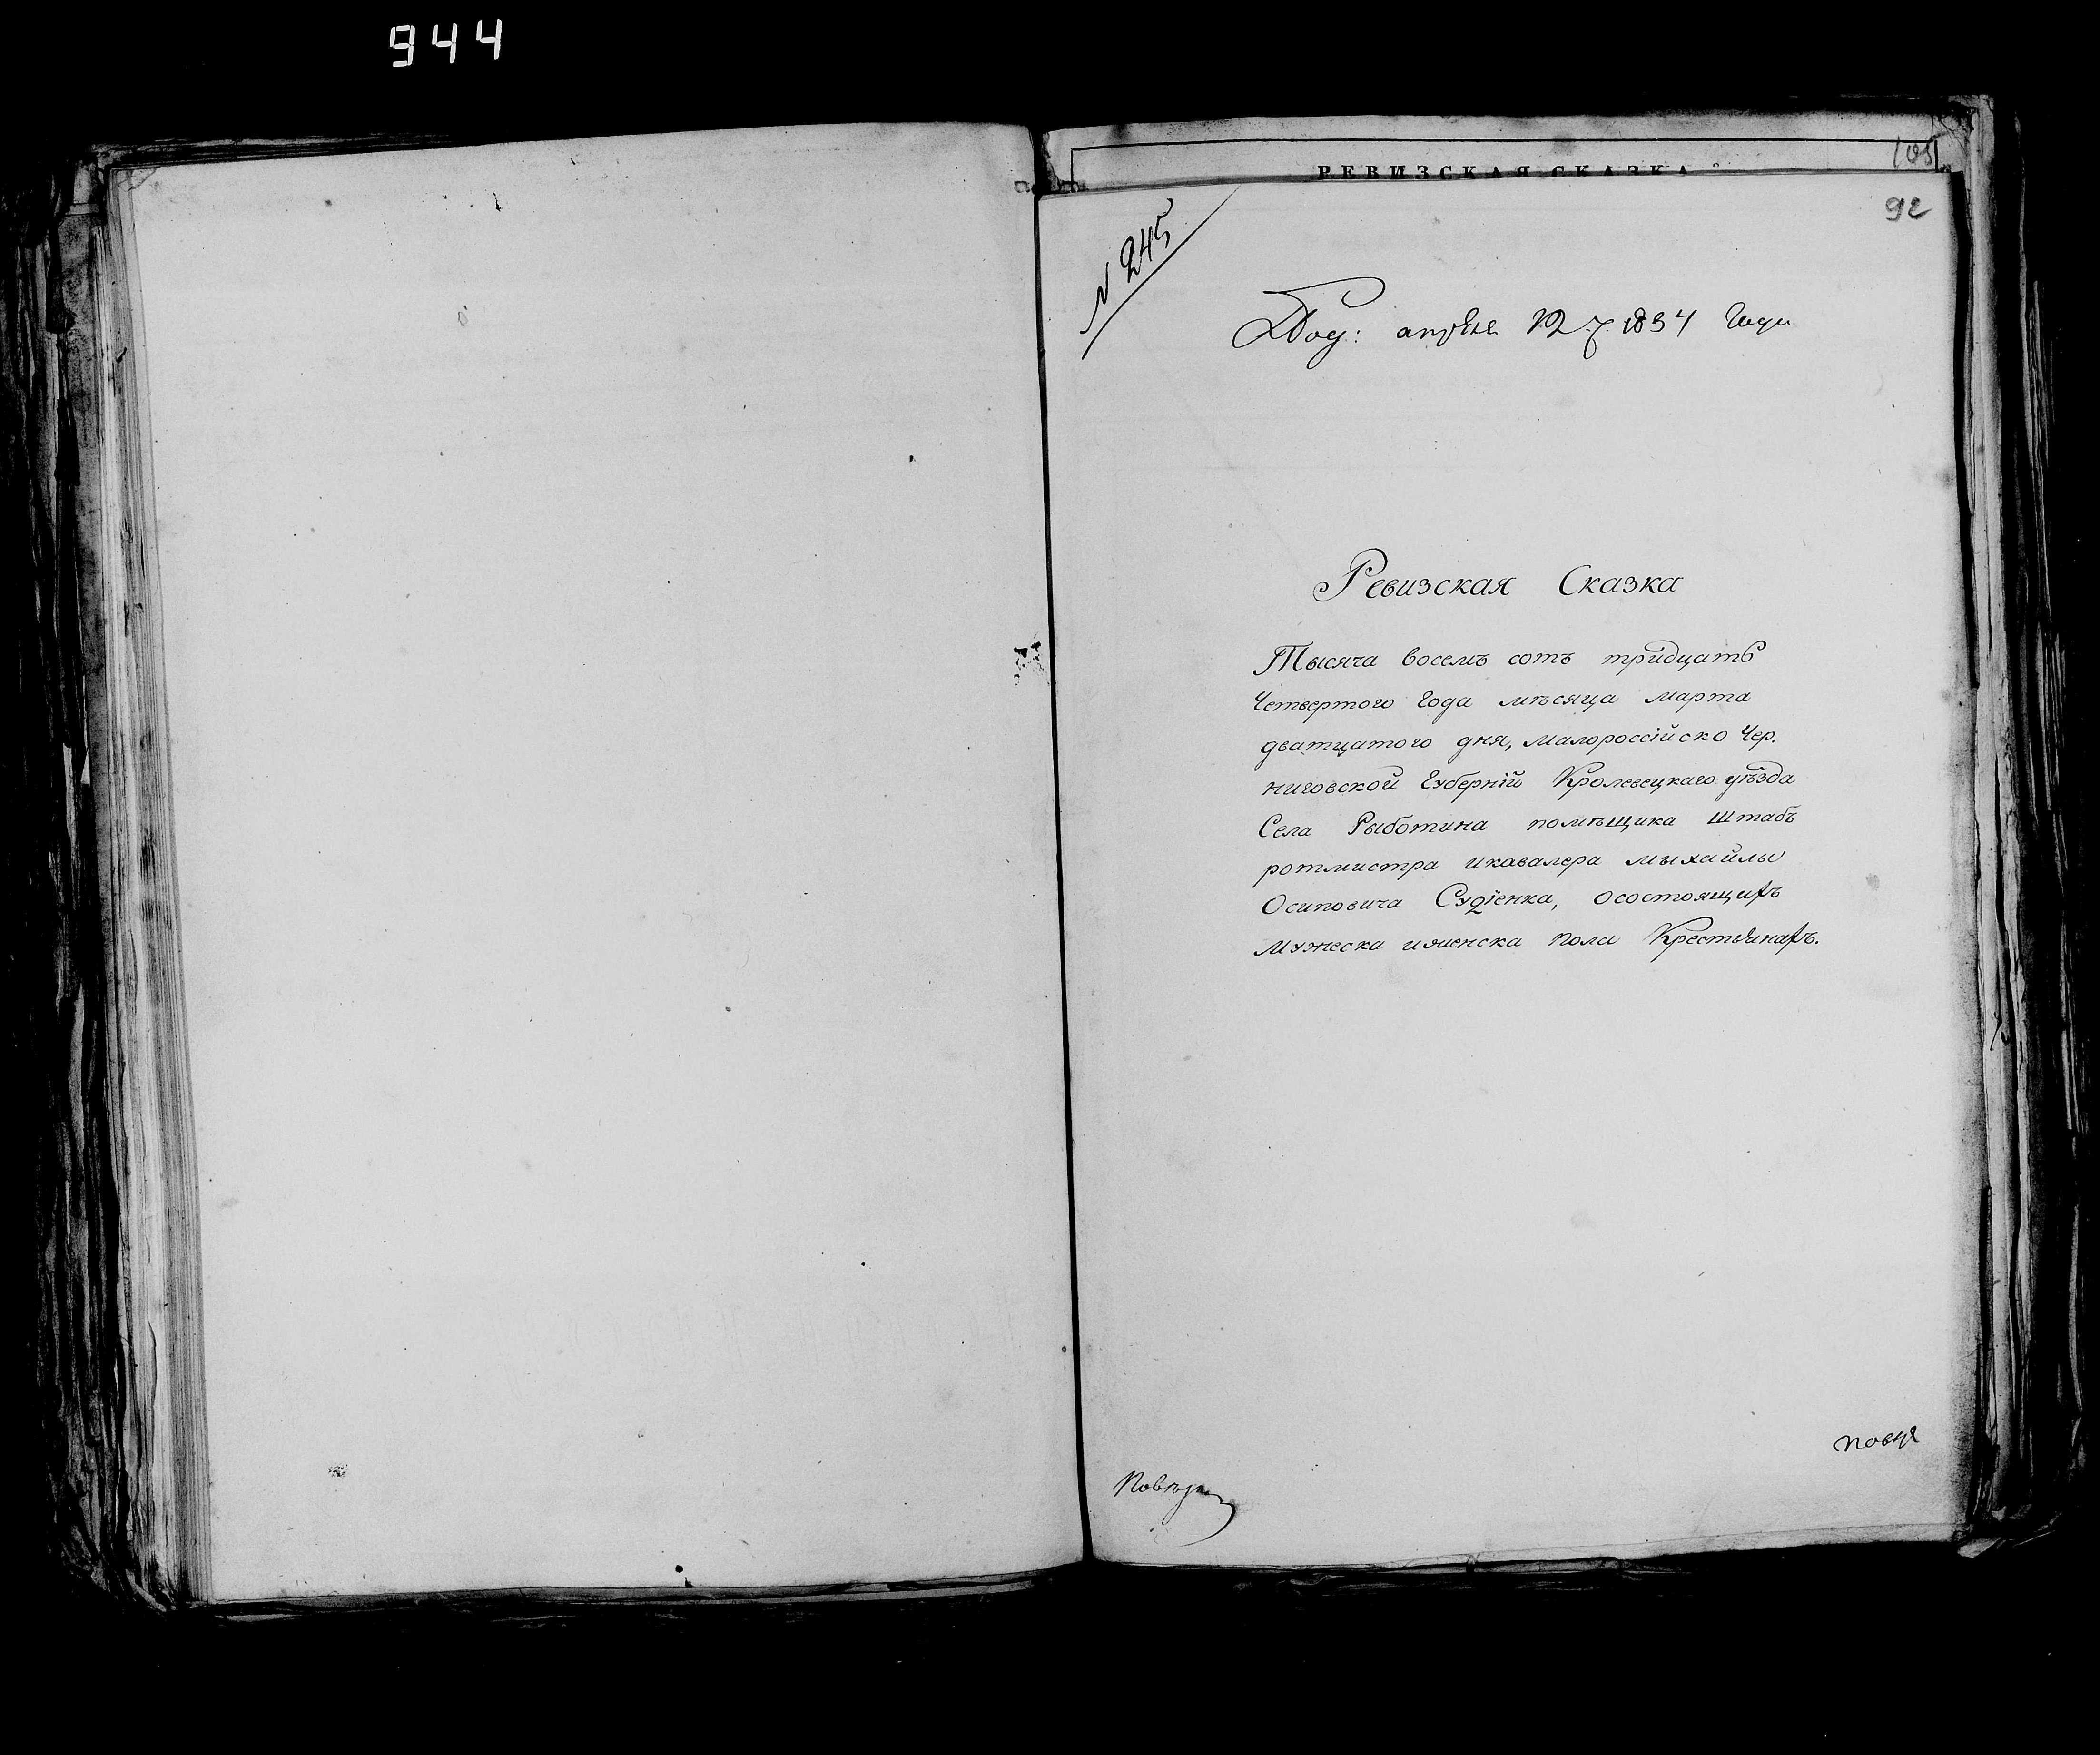 944
РЕВИЗСКАЯ СКАЗКА
105
92
N 245
Под: апреля 12 1834 Года
Ревизская Сказка
Тысяча восемъ сотъ тридцать
Четвертого Года мѣсяца марта
дватцатого дня, малороссійско Чер.
ниговской Губерній Кролевецкаго уѣзда
Села Рыботина помѣщика штабъ
ротмистра икавалера мыхайлы
Осиповича Судіенка, осостоящихъ
мужеска иженска пола Крестьянахъ.